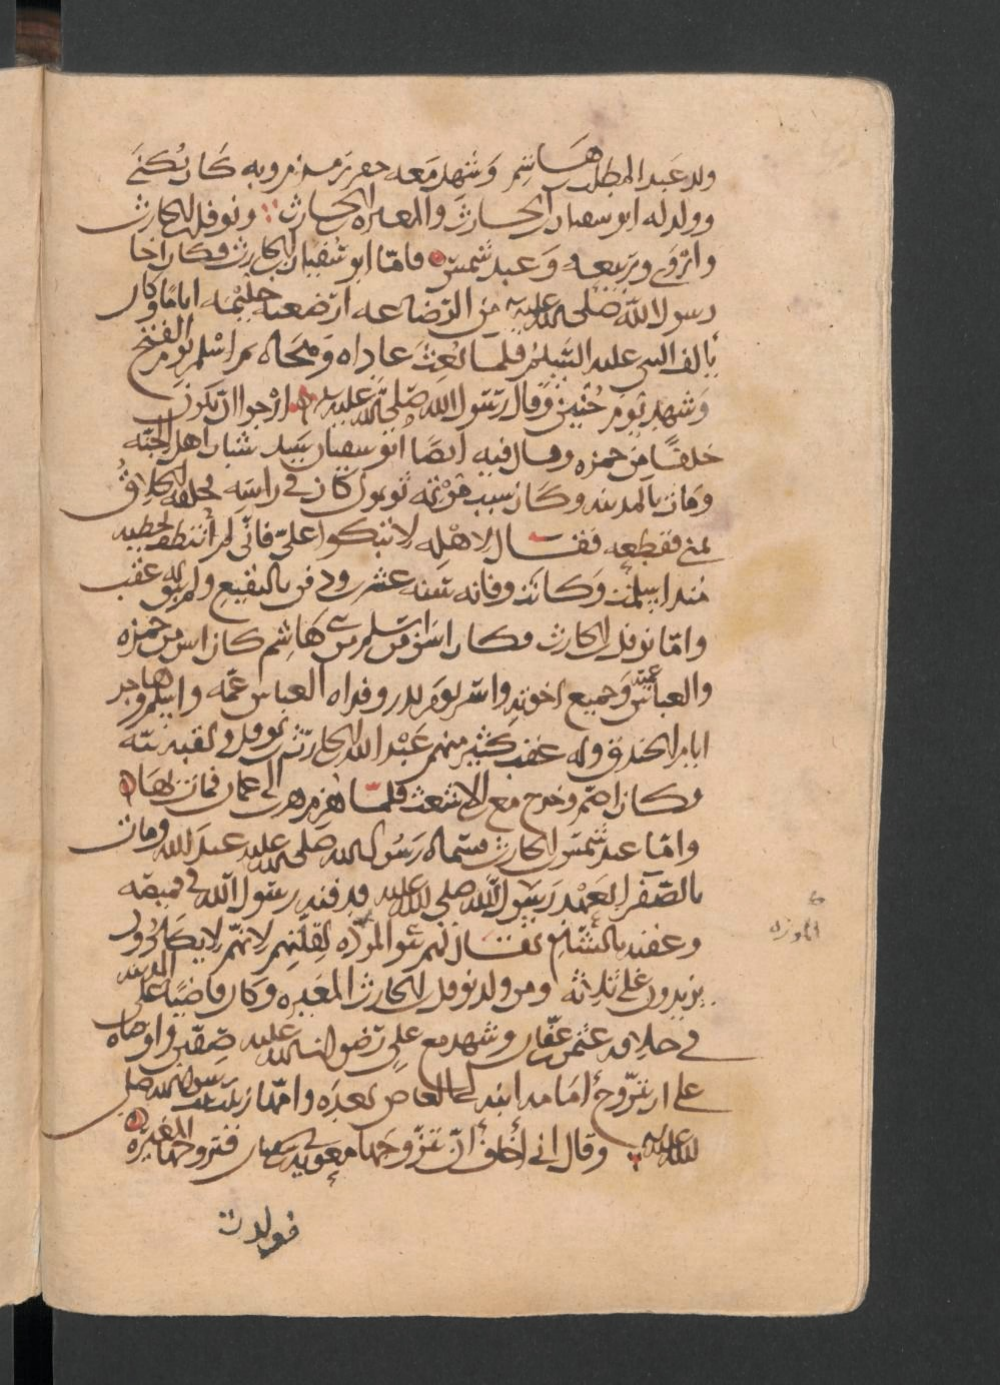 ولد عبد المطلب هاشم وشهد معه حفر زمزم وبه كان يكنى
وولد له ابو سفيان الحارث والمغيره الحارث ونوفل الحارث
واروى وربيعه وعبد شمس فامّا ابو سفيان الحارث فكان اخا
رسول الله صلى الله عليه من الرّضاعه ارضعته حليمه اياما وكان
يالف النبي عليه السّلم فلما بُعث عاداه وهجاه ثم اسلم يوم الفتح
وشهد يوم حُنين وقال رسول الله صلى الله عليه ارجوا ان تكون
خلفًا من حمزه وقال فيه ايضًا ابو سفيان سيد شباب اهل الجنّه
ومات بالمدينه وكان سبب موته ثولول كان في راسه فحلقه الحلاق
بمنى فقطعه فقال لاهله لا تبكوا عليّ فانّي لم أتنطف بخطيه
منذ اسلمت وكانت وفاته سنه عشرين ودفن بالبقيع ولم يبق له عقب
وامّا نوفل الحارث فكان اسن من اسلم من بني هاشم كان اسن من حمزه
والعباس عميّه وجميع اخوته واسر يوم بدر وفداه العباس عمّه واسلم وهاجر
ايام الخندق وله عقب كثير منهم عبد الله الحارث نوفل ولقبه ببّه
وكان اصم وخرج مع الاشعث فلمّا هزم هرب الى عمان فمات بها
وامّا عبد شمس الحارث فسماه رسول الله صلى الله عليه عبد الله ومات
بالصفرا بعهد رسول الله صلى الله عليه فدفنه رسول الله في قميصه
وعقبه بالشام يقال لهم بنو الموزه لقلتهم لانّهم لا يكادون
يزيدون على ثلاثه ومن ولد نوفل الحارث المغيره وكان قاضيًا على المدينه
في خلافه عثمن عفّان وشهد مع علي رضوان الله عليه صفّين واوصاه
علي ان يتزوج أمامه ابنه ابي العاص بعده وامّها زينب بنت رسول الله صلى
الله عليه وقال اني أخاف أن يتزوجها معويه فتزوجها المغيره
فولدت
الموزه